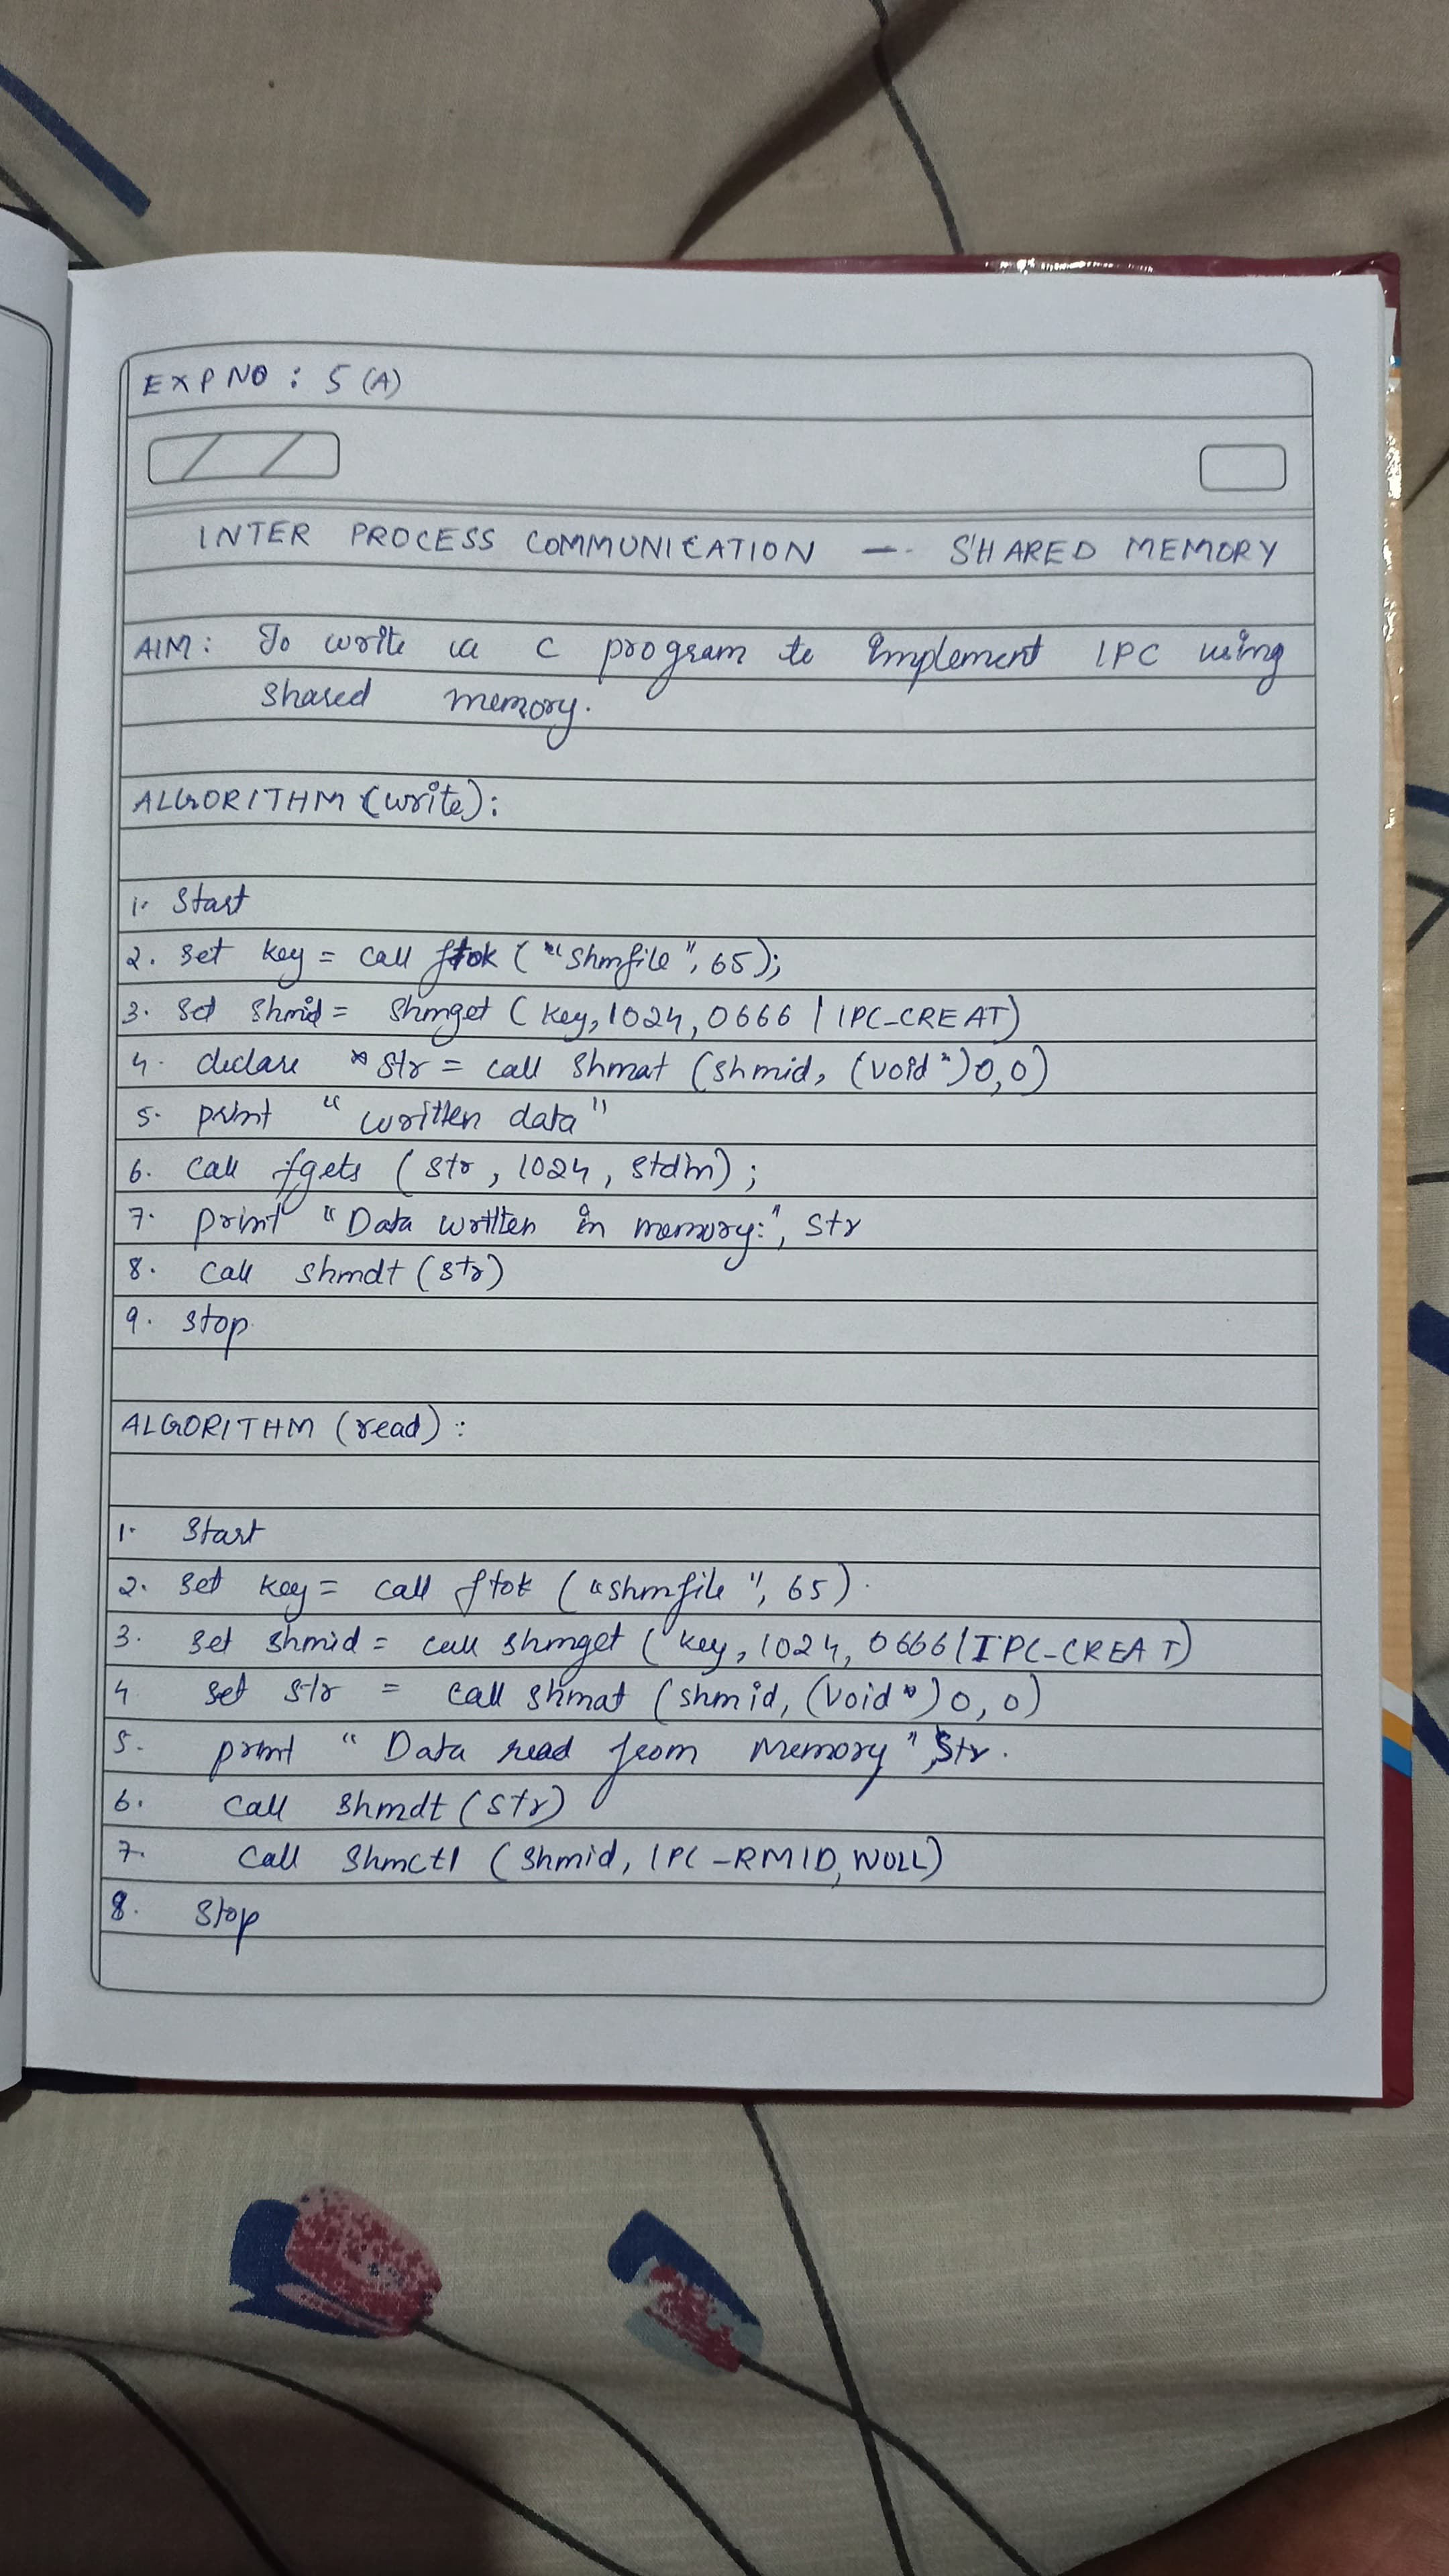 EXP NO : 5 (A)
INTER PROCESS COMMUNICATION — SHARED MEMORY
AIM: To write a C program to implement IPC using
shared memory.
ALGORITHM (write):
1. Start
2. set key = call ftok ("shmfile", 65);
3. set shmid = shmget (key, 1024, 0666 | IPC_CREAT)
4. declare *str = call shmat (shmid, (void*)0,0)
5. print "written data"
6. call fgets (str, 1024, stdin);
7. print "Data written in memory:", str
8. call shmdt (str)
9. stop
ALGORITHM (read) :
1. Start
2. set key = call ftok ("shmfile", 65).
3. set shmid = call shmget (key, 1024, 0666 | IPC_CREAT)
4 set str = call shmat (shmid, (void*) 0, 0)
5. print "Data read from memory", str.
6. call shmdt (str)
7. call shmctl (shmid, IPC_RMID, NULL)
8. Stop